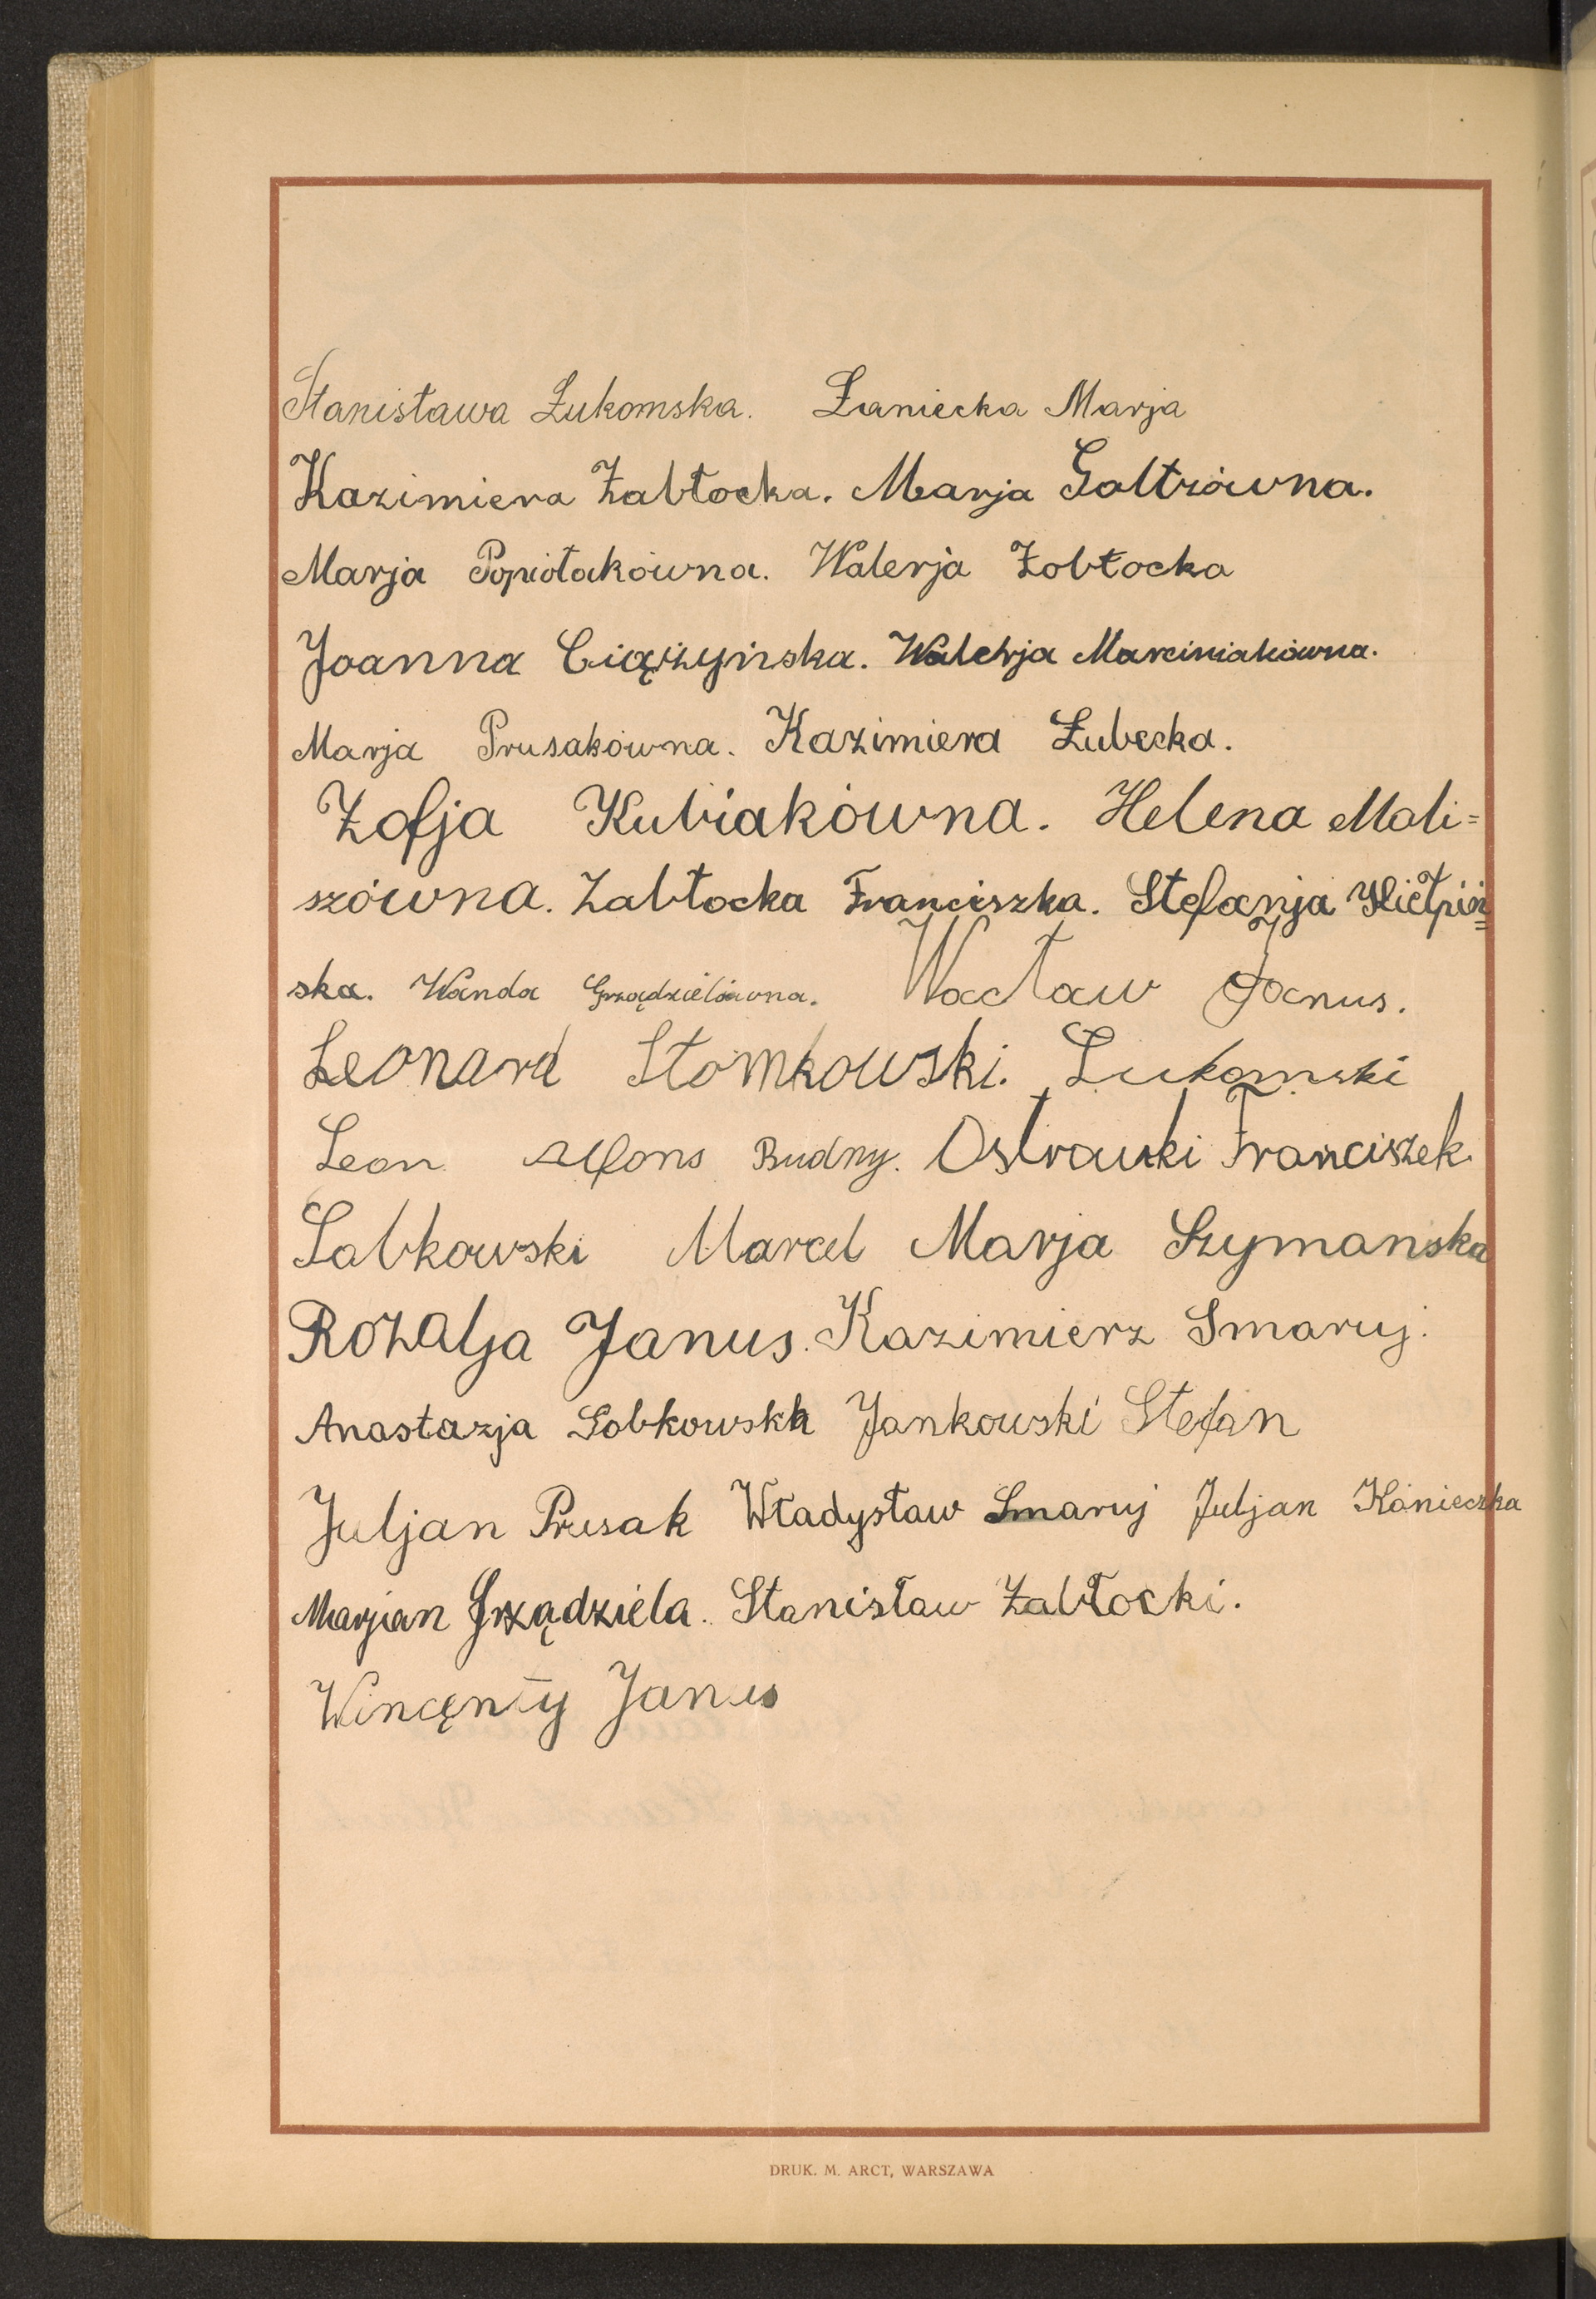 Stanisława Łukomska. Łaniecka Marja
Kazimiera Zabłocka. Marja Goltzówna.
Marja Popiołakówna. Walerja Zobłocka
Joanna Ciążyńska. Walerja Marciniakówna.
Marja Prusakówna. Kazimiera Łubecka.
Zofja Kubiakówna. Helena Mali=
szówna. Zabłocka Franciszka. Stefanja
ska. Wanda Grządzielówna. Wacław Janus.
Leonard Słomkowski. Łukomski
Leon Alfons Budny. Ostrowski Franciszek
Sobkowski Marcel Marja Szymanska
Rozalja Janus. Kazimierz Smaruj.
Anastazja Sobkowska Jankowski Stefan
Juljan Prusak Władysław Smaruj Juljan Konieczka
Marjan Grządziela. Stanisław Zabłocki.
Wincęnty Janus
DRUK. M. ARCT, WARSZAWA